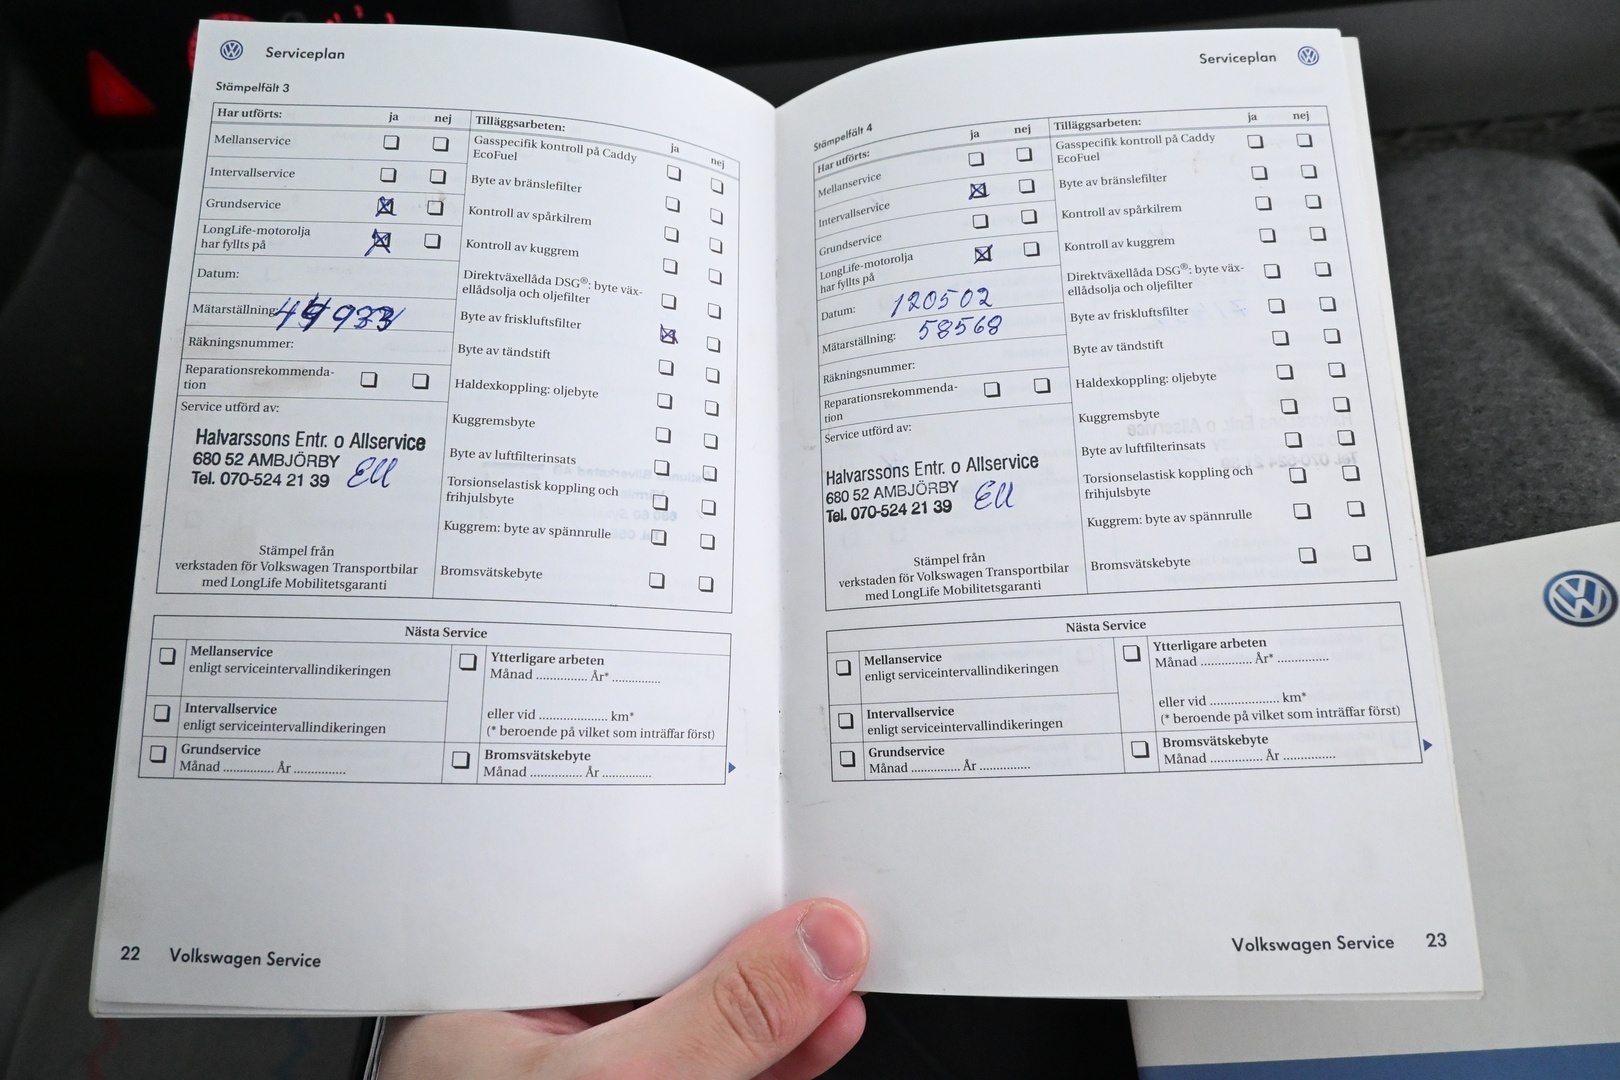 Serviceplan
Stämpelfält 3
Har utförts: ja nej
Mellanservice
Intervallservice
Grundservice
LongLife-motorolja
har fyllts på
Datum:
Mätarställning:
Räkningsnummer:
Reparationsrekommenda-
tion
Service utförd av:
Halvarssons Entr. o Allservice
680 52 AMBJÖRBY
Tel. 070-524 21 39
Stämpel från
verkstaden för Volkswagen Transportbilar
med LongLife Mobilitetsgaranti
Tilläggsarbeten: ja nej
Gasspecifik kontroll på Caddy
EcoFuel
Byte av bränslefilter
Kontroll av spårkilrem
Kontroll av kuggrem
Direktväxellåda DSG®: byte väx-
ellådsolja och oljefilter
Byte av friskluftsfilter
Byte av tändstift
Haldexkoppling: oljebyte
Kuggremsbyte
Byte av luftfilterinsats
Torsionselastisk koppling och
frihjulsbyte
Kuggrem: byte av spännrulle
Bromsvätskebyte
Nästa Service
Mellanservice
enligt serviceintervallindikeringen
Intervallservice
enligt serviceintervallindikeringen
Grundservice
Månad ............... År ...............
Ytterligare arbeten
Månad ............... År* ..............
eller vid .................... km*
(* beroende på vilket som inträffar först)
Bromsvätskebyte
Månad ............... År ..............
22 Volkswagen Service
Serviceplan
Stämpelfält 4
Har utförts: ja nej
Mellanservice
Intervallservice
Grundservice
LongLife-motorolja
har fyllts på
Datum: 120502
Mätarställning: 58568
Räkningsnummer:
Reparationsrekommenda-
tion
Service utförd av:
Halvarssons Entr. o Allservice
680 52 AMBJÖRBY
Tel. 070-524 21 39
Stämpel från
verkstaden för Volkswagen Transportbilar
med LongLife Mobilitetsgaranti
Tilläggsarbeten: ja nej
Gasspecifik kontroll på Caddy
EcoFuel
Byte av bränslefilter
Kontroll av spårkilrem
Kontroll av kuggrem
Direktväxellåda DSG®: byte väx-
ellådsolja och oljefilter
Byte av friskluftsfilter
Byte av tändstift
Haldexkoppling: oljebyte
Kuggremsbyte
Byte av luftfilterinsats
Torsionselastisk koppling och
frihjulsbyte
Kuggrem: byte av spännrulle
Bromsvätskebyte
Nästa Service
Mellanservice
enligt serviceintervallindikeringen
Intervallservice
enligt serviceintervallindikeringen
Grundservice
Månad ............... År ...............
Ytterligare arbeten
Månad ............... År* ...............
eller vid .................... km*
(* beroende på vilket som inträffar först)
Bromsvätskebyte
Månad ............... År ...............
Volkswagen Service 23